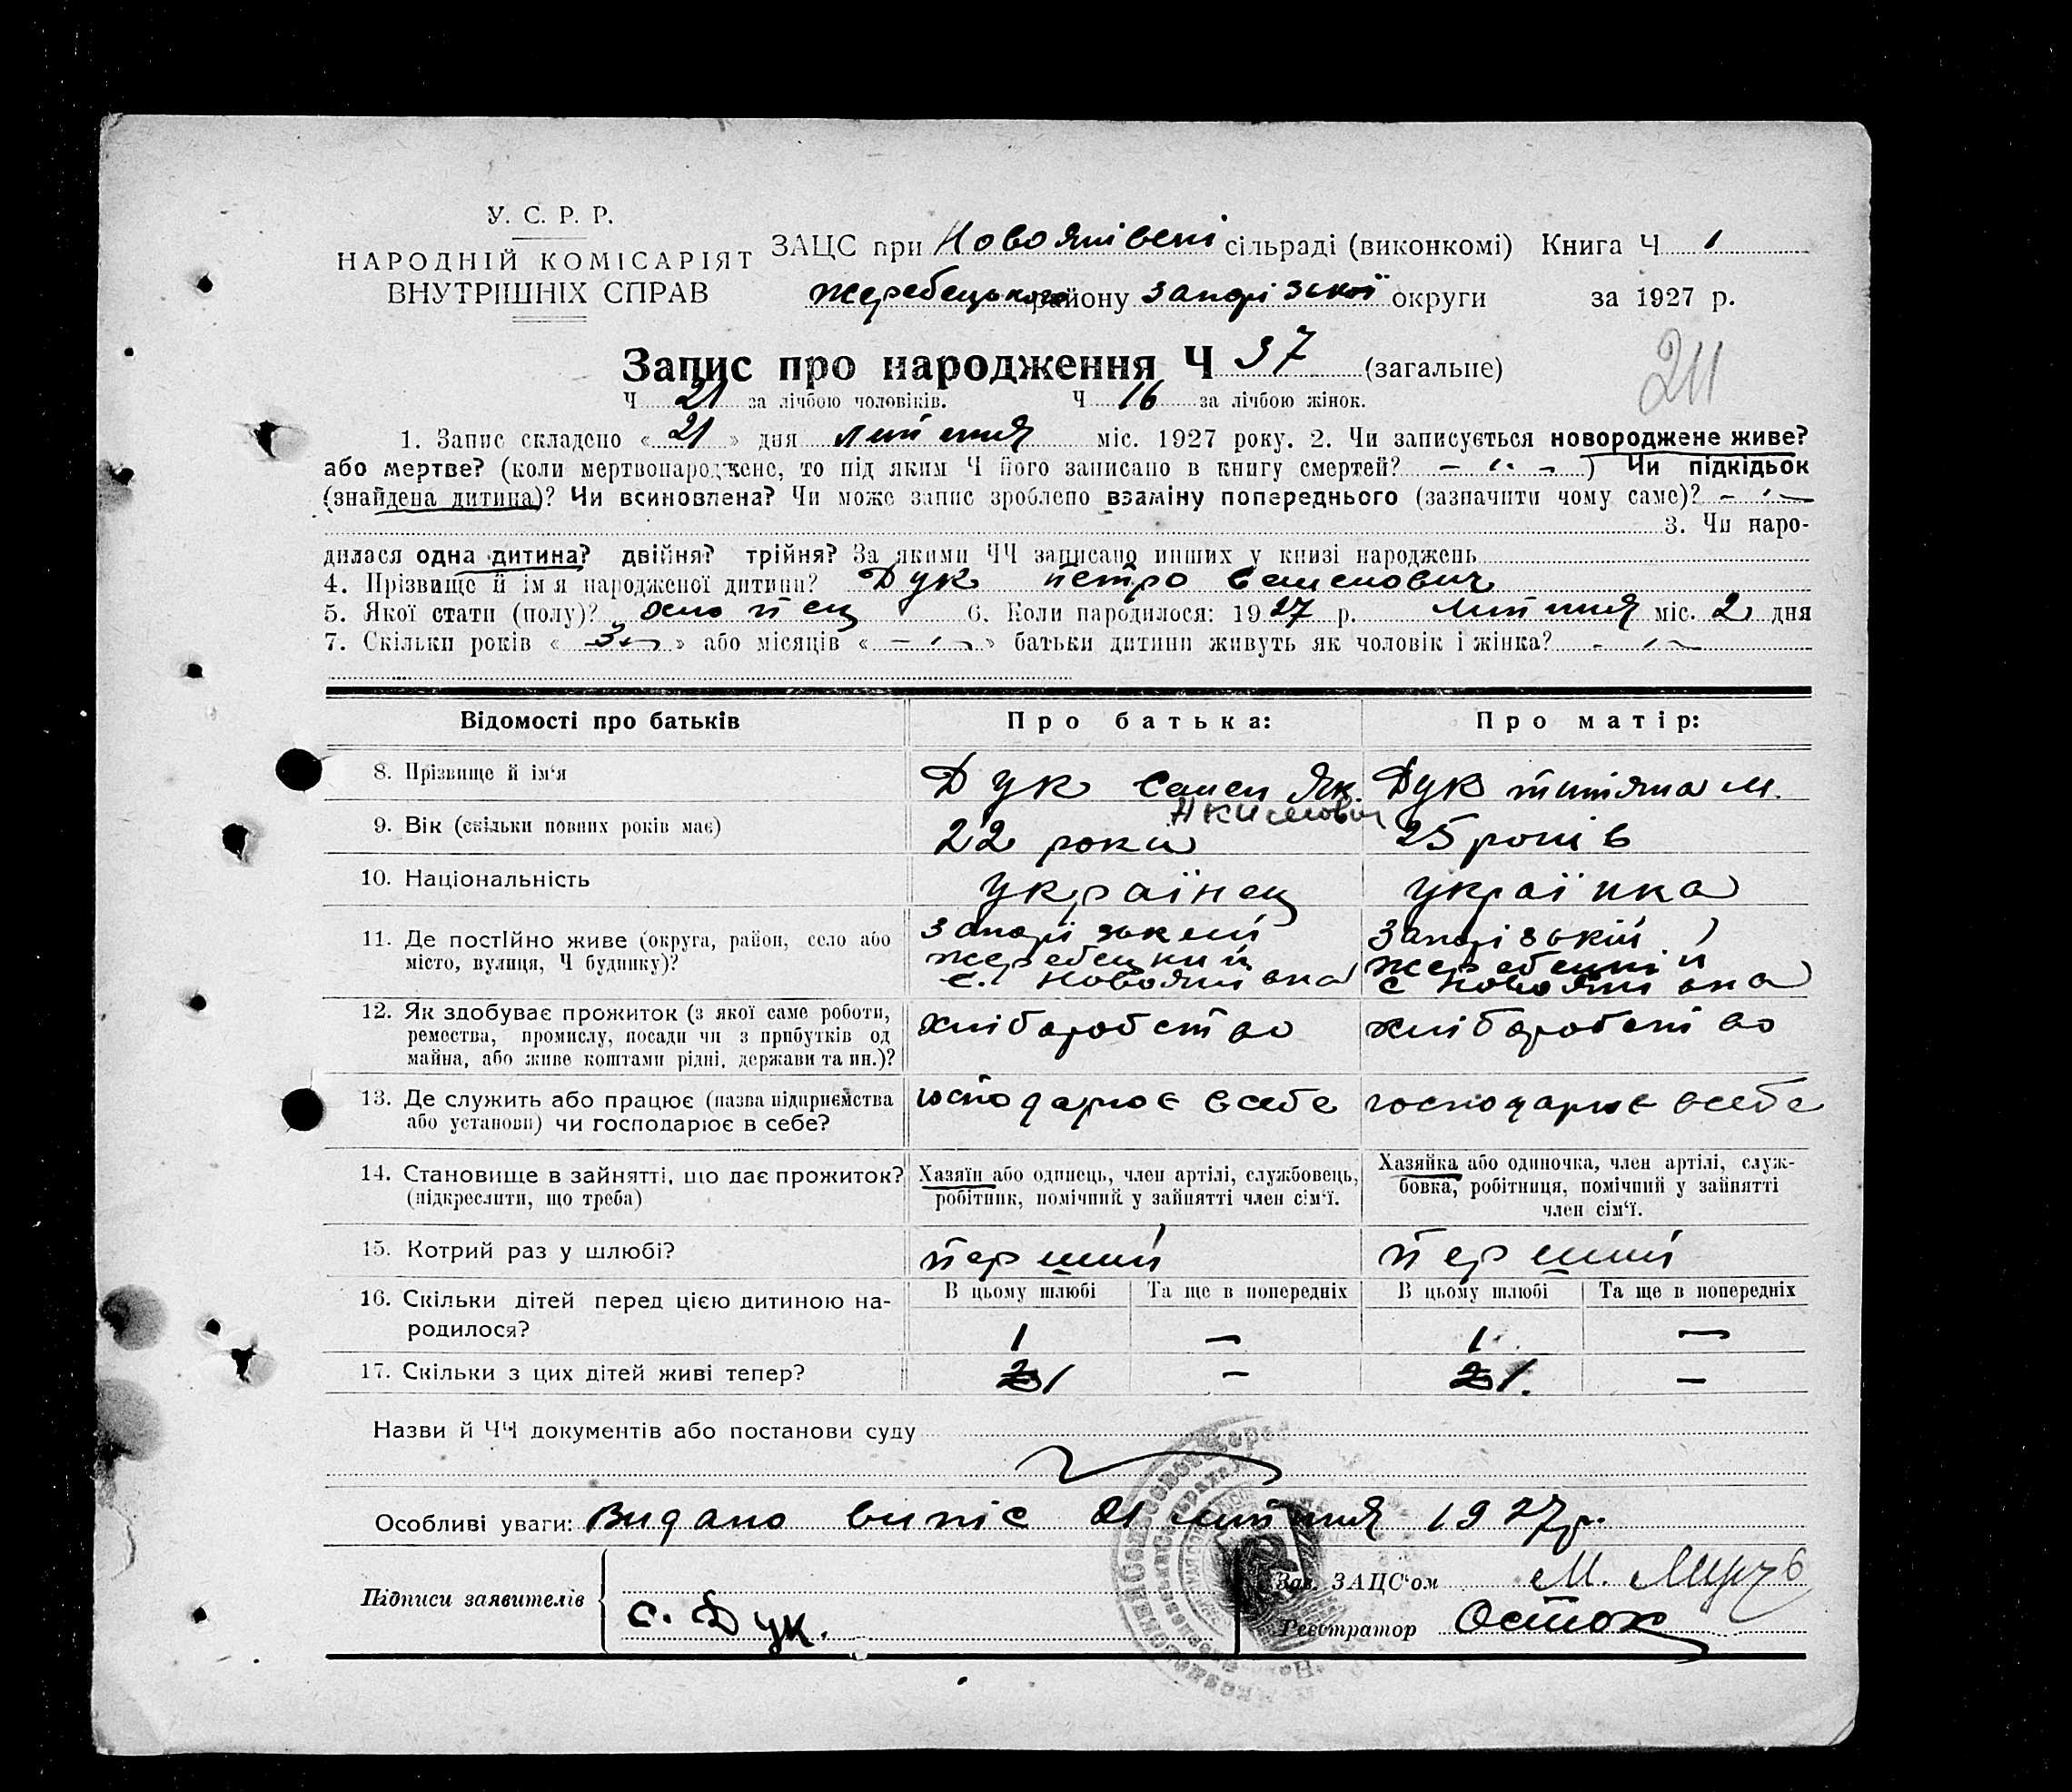 У. С. Р. Р.
НАРОДНІЙ КОМІСАРІЯТ
ВНУТРІШНІХ СПРАВ
ЗАЦС при Новоямівскі сільраді (виконкомі) Книга Ч 1
Жеребецького району Запорізької округи за 1927 р.
Запис про народження Ч 37 (загальне)
211
Ч 21 за лічбою чоловіків. Ч 16 за лічбою жінок.
1. Запис складено « 21 » дня липня міс. 1927 року. 2. Чи записується новороджене живе?
або мертве? (коли мертвонароджене, то під яким Ч його записано в книгу смертей? — „ — ) Чи підкідьок
(знайдена дитина)? Чи всиновлена? Чи може запис зроблено взаміну попереднього (зазначити чому саме)? — „ —
3. Чи наро-
дилася одна дитина? двійня? трійня? За якими ЧЧ записано инших у книзі народжень
4. Прізвище й імя народженої дитини? Дук Петро Семенович
5. Якої стати (полу)? хлопець 6. Коли народилося: 1927 р. липня міс. 2 дня
7. Скільки років « 3 » або місяців « — „ — » батьки дитини живуть як чоловік і жінка? — „ —
Відомості про батьків Про батька: Про матір:
8. Прізвище й ім'я Дук Семен Як. Дук Титяна М.
Акимович
9. Вік (скільки повних років має) 22 роки 25 років
10. Національність Українец Українка
11. Де постійно живе (округа, район, село або
місто, вулиця, Ч будинку)?
Жеребецкий Жеребецкій
12. Як здобуває прожиток (з якої саме роботи,
ремества, промислу, посади чи з прибутків од
майна, або живе коштами рідні, держави та ин.)?
хліборобство хліборобство
13. Де служить або працює (назва підприємства
або установи) чи господарює в себе?
господарює в себе господарює в себе
14. Становище в зайнятті, що дає прожиток?
(підкреслити, що треба)
Хазяїн або одинець, член артілі, службовець,
робітник, помічний у зайнятті член сім'ї.
Хазяйка або одиночка, член артілі, служ-
бовка, робітниця, помічний у зайнятті
член сім'ї.
15. Котрий раз у шлюбі? перший перший
В цьому шлюбі Та ще в попередніх В цьому шлюбі Та ще в попередніх
16. Скільки дітей перед цією дитиною на-
родилося?
1 — 1 —
17. Скільки з цих дітей живі тепер? 2 1 — 2 1. —
Назви й ЧЧ документів або постанови суду
Особливі уваги: Видано випіс 21 липня 1927 р.
Підписи заявителів
С. Дук.
Зав. ЗАЦС'ом М.
Реєстратор Осток